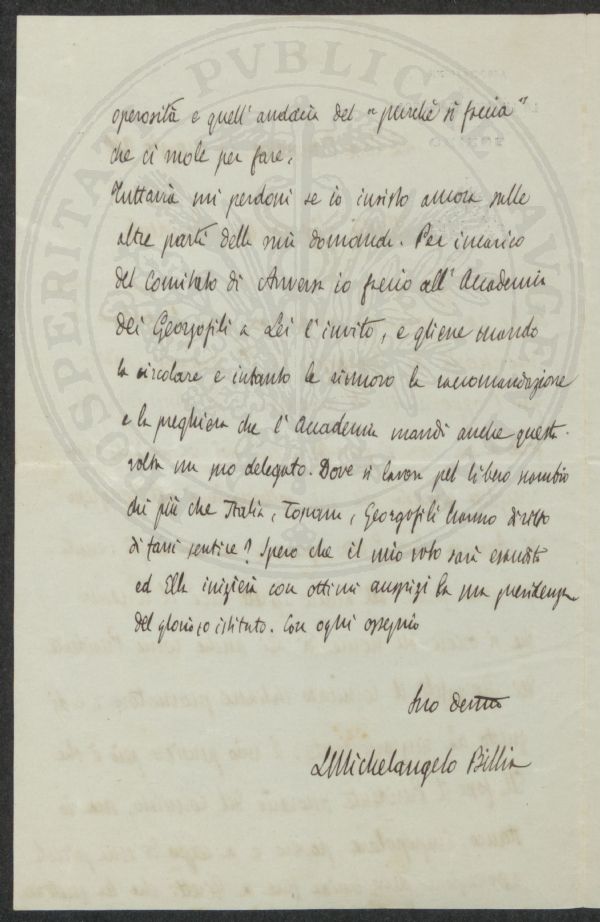 operosità e quell'audacia del "purchè si faccia"
che ci vuole per fare.
Tuttavia mi perdoni se io insisto ancora sulle
altre parti della mia domanda. Per incarico
del Comitato di Anversa io faccio all'Accademia
dei Georgofili e a Lei l'invito, e gliene mando
la circolare e intanto le rinnovo la raccomandazione
e la preghiera che l'Accademia mandi anche questa
volta un suo delegato. Dove si lavora pel libero scambio
chi più che Italia, Toscana, Georgofili hanno diritto
di farsi sentire? Spero che il mio voto sarà esaudito
ed Ella inizierà con ottimi auspizi la sua presidenza
del glorioso istituto. Con ogni ossequio
Suo devmo
LMichelangelo Billia
PVBLICAE
PROSPERITATI AVGENDAE